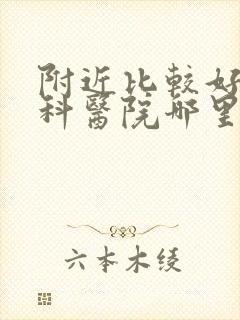 附近比較好
科醫院哪里
六本木绫